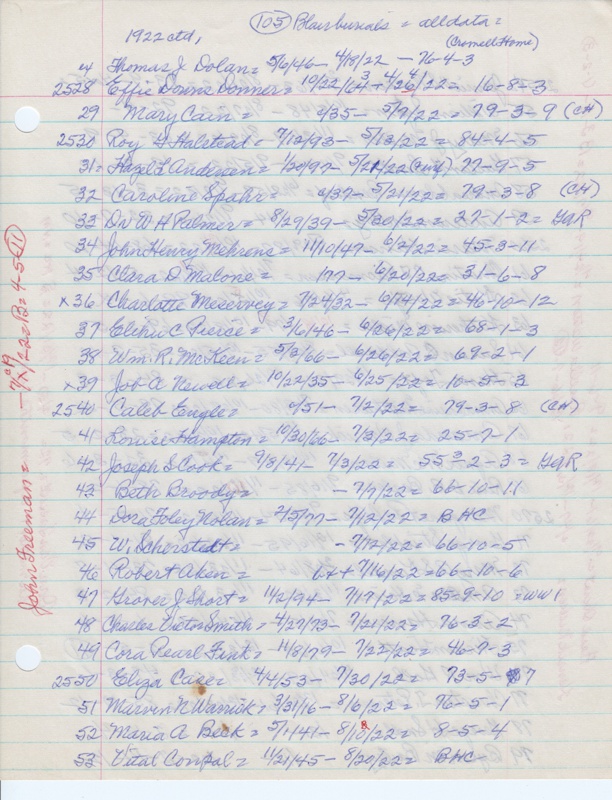 1922 ctd, (105) Blair burials = all data =
(Crowell Home)
24 Thomas J. Dolan = 5/6/46 - 4/18/22 - 76-4-3
2528 Effie Donna Donner = 10/22/64 + 4/26/22 = 16-8-3
29 Mary Cain = c/35 - 5/7/22 = 79-3-9 (CH)
2530 Roy G Halstead = 7/12/93 - 5/13/22 = 84-4-5
31 = Hazel L Andersen = 1/20/97 - 5/21/22 77-9-5
32 Caroline Spahr = c/37 - 5/21/22 = 79-3-8 (CH)
33 Dr W H Palmer = 8/29/39 - 5/30/22 = 27-1-2 = GAR
34 John Henry Mehrens = 11/10/47 - 6/2/22 = 45-3-11
35 Clara D. Malone = 1877 - 6/20/22 = 31-6-8
x 36 Charlotte Meservey = 7/24/32 - 6/14/22 = 46-10-12
37 Elihu C Pierce = 3/6/46 - 6/26/22 = 68-1-3
38 Wm. R. McKeen = 5/3/66 - 6/26/22 = 69-2-1
x 39 Job A Newell = 10/22/35 - 6/25/22 = 10-5-3
2540 Caleb Engle = c/51 - 7/2/22 = 79-3-8 (CH)
41 Louise Hampton = 10/30/66 - 7/3/22 = 25-7-1
42 Joseph S Cook = 9/8/41 - 7/3/22 = 55-2-3 = GAR
43 Beth Broody = - 7/7/22 = 66-10-11
44 Dora Foley Nolan = 2/5/77 - 7/12/22 = BHC
45 W. Scherstedt = - 7/12/22 = 66-10-5
46 Robert Aken = 7/16/22 = 66-10-6
47 Grover J Short = 11/2/94 - 7/17/22 = 85-9-10 = WW1
48 Charles Victor Smith = 4/27/73 - 7/21/22 = 76-3-2
49 Cora Pearl Fink = 11/8/79 - 7/22/22 = 46-7-3
2550 Eliza Case = 4/4/53 - 7/30/22 = 73-5-7
51 Marvin N Warrick = 3/31/16 - 8/6/22 = 76-5-1
52 Maria A Beck = 5/1/41 - 8/18/22 = 8-5-4
53 Vital Conpal = 11/21/45 - 8/20/22 = BHC
John Freeman = /22 = B = 4-5-11